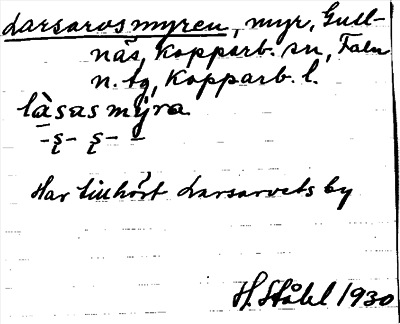 Larsarvsmyren, myr, Gull-
näs, Kopparb. sn, Falu
n. tg, Kopparb. l.
làsasmýra
-ș- ș- -
Har tillhört Larsarvets by
H. Ståhl 1930